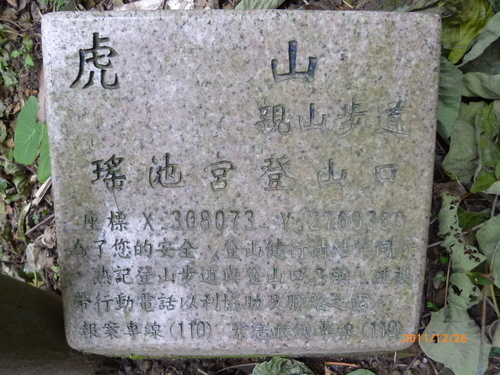 虎山
親山步道
瑤池宮登山口
座標 X:308073 Y:2769360
為了您的安全，登山健行請結伴同行
熟記登山步道與登山口名稱，並攜
帶行動電話以利協助及聯絡
報案專線(110) 緊急救援專線(119)
2011/12/26